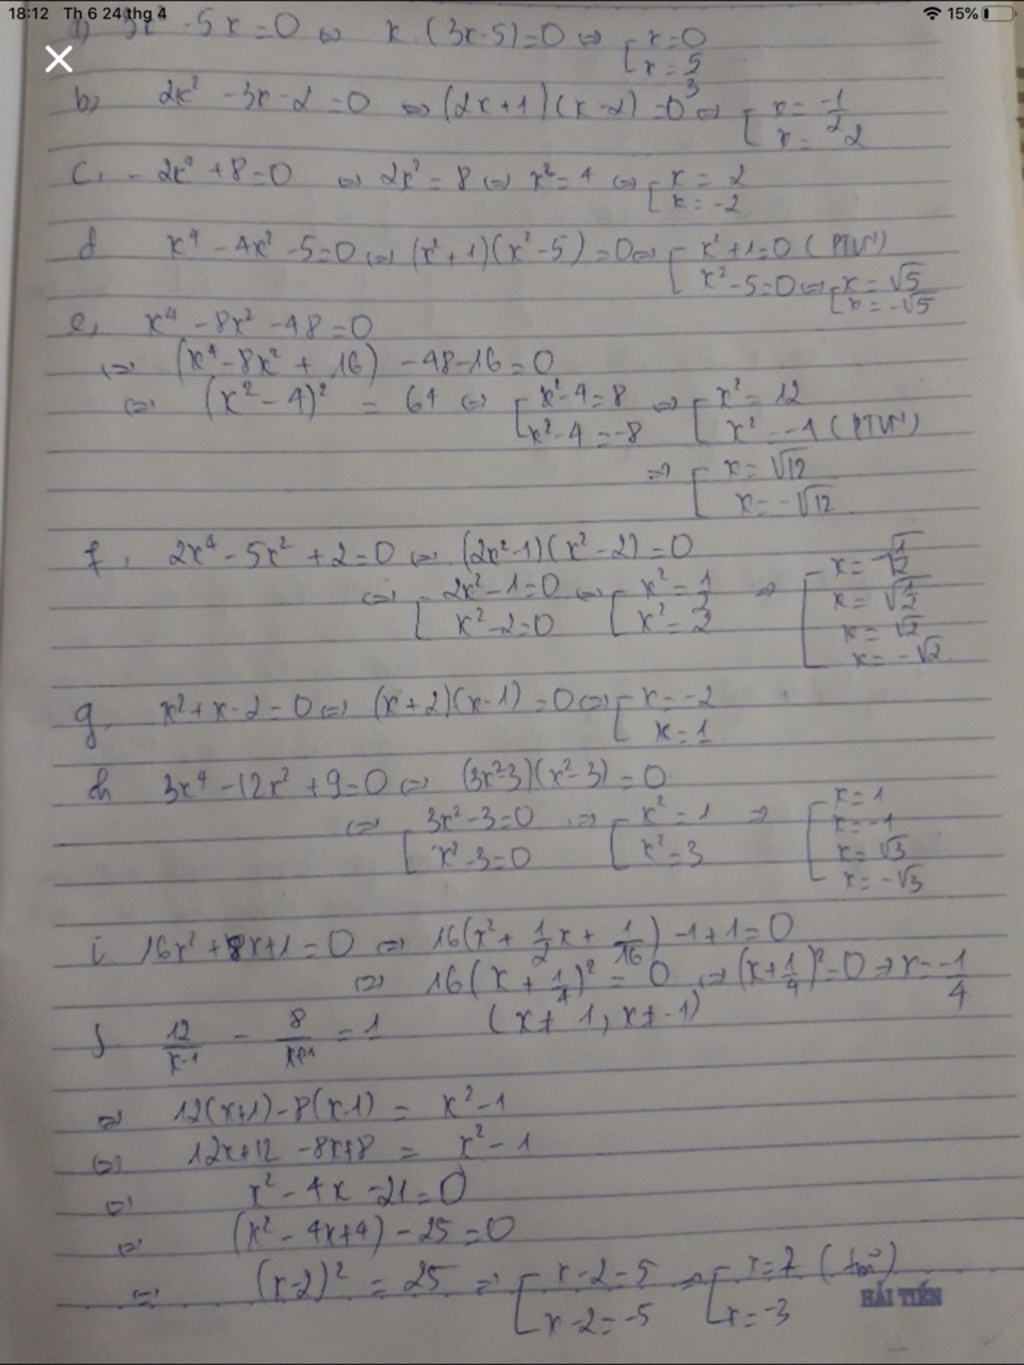 18:12 Th 6 24 thg 4 15%
3x² - 5x = 0 ⇔ x(3x-5) = 0 ⇔ [x = 0
x = 5/3
b, 2x² - 3x - 2 = 0 ⇔ (2x+1)(x-2) = 0 ⇔ [x = -1/2
x = 2
c, -2x² + 8 = 0 ⇔ 2x² = 8 ⇔ x² = 4 ⇔ [x = 2
x = -2
d x⁴ - 4x² - 5 = 0 ⇔ (x²+1)(x²-5) = 0 ⇔ [x²+1=0 (PTVN)
x²-5=0 ⇔ [x = √5
x = -√5
e, x⁴ - 8x² - 48 = 0
⇔ (x⁴ - 8x² + 16) - 48 - 16 = 0
⇔ (x² - 4)² = 64 ⇔ [x²-4 = 8 ⇔ [x² = 12
x²-4 = -8 x² = -4 (PTVN)
⇒ [x = √12
x = -√12
f, 2x⁴ - 5x² + 2 = 0 ⇔ (2x²-1)(x²-2) = 0
⇔ [2x²-1=0 ⇔ [x² = 1/2 ⇒ [x = -√1/2
x²-2=0 x² = 2 x = √1/2
x = √2
x = -√2
g, x² + x - 2 = 0 ⇔ (x+2)(x-1) = 0 ⇔ [x = -2
x = 1
h 3x⁴ - 12x² + 9 = 0 ⇔ (3x²-3)(x²-3) = 0
⇔ [3x²-3=0 ⇒ [x² = 1 ⇒ [x = 1
x²-3=0 x² = 3 x = -1
x = √3
x = -√3
i. 16x² + 8x + 1 = 0 ⇔ 16(x² + 1/2x + 1/16) - 1 + 1 = 0
⇔ 16(x + 1/4)² = 0 ⇒ (x + 1/4)² = 0 ⇒ x = -1/4
j 12/x-1 - 8/x+1 = 1 (x ≠ 1, x ≠ -1)
⇔ 12(x+1) - 8(x-1) = x² - 1
⇔ 12x + 12 - 8x + 8 = x² - 1
⇔ x² - 4x - 21 = 0
⇔ (x² - 4x + 4) - 25 = 0
⇔ (x-2)² = 25 ⇒ [x-2 = 5 ⇒ [x = 7 (tm)
x-2 = -5 x = -3
HẢI TIẾN